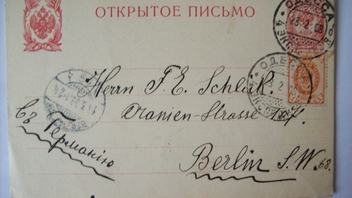 ОТКРЫТОЕ ПИСЬМО
ОДЕССА
Herrn F. E. Schlick.
Oranien-Strasse
Berlin S.W. 68.
Въ Германію